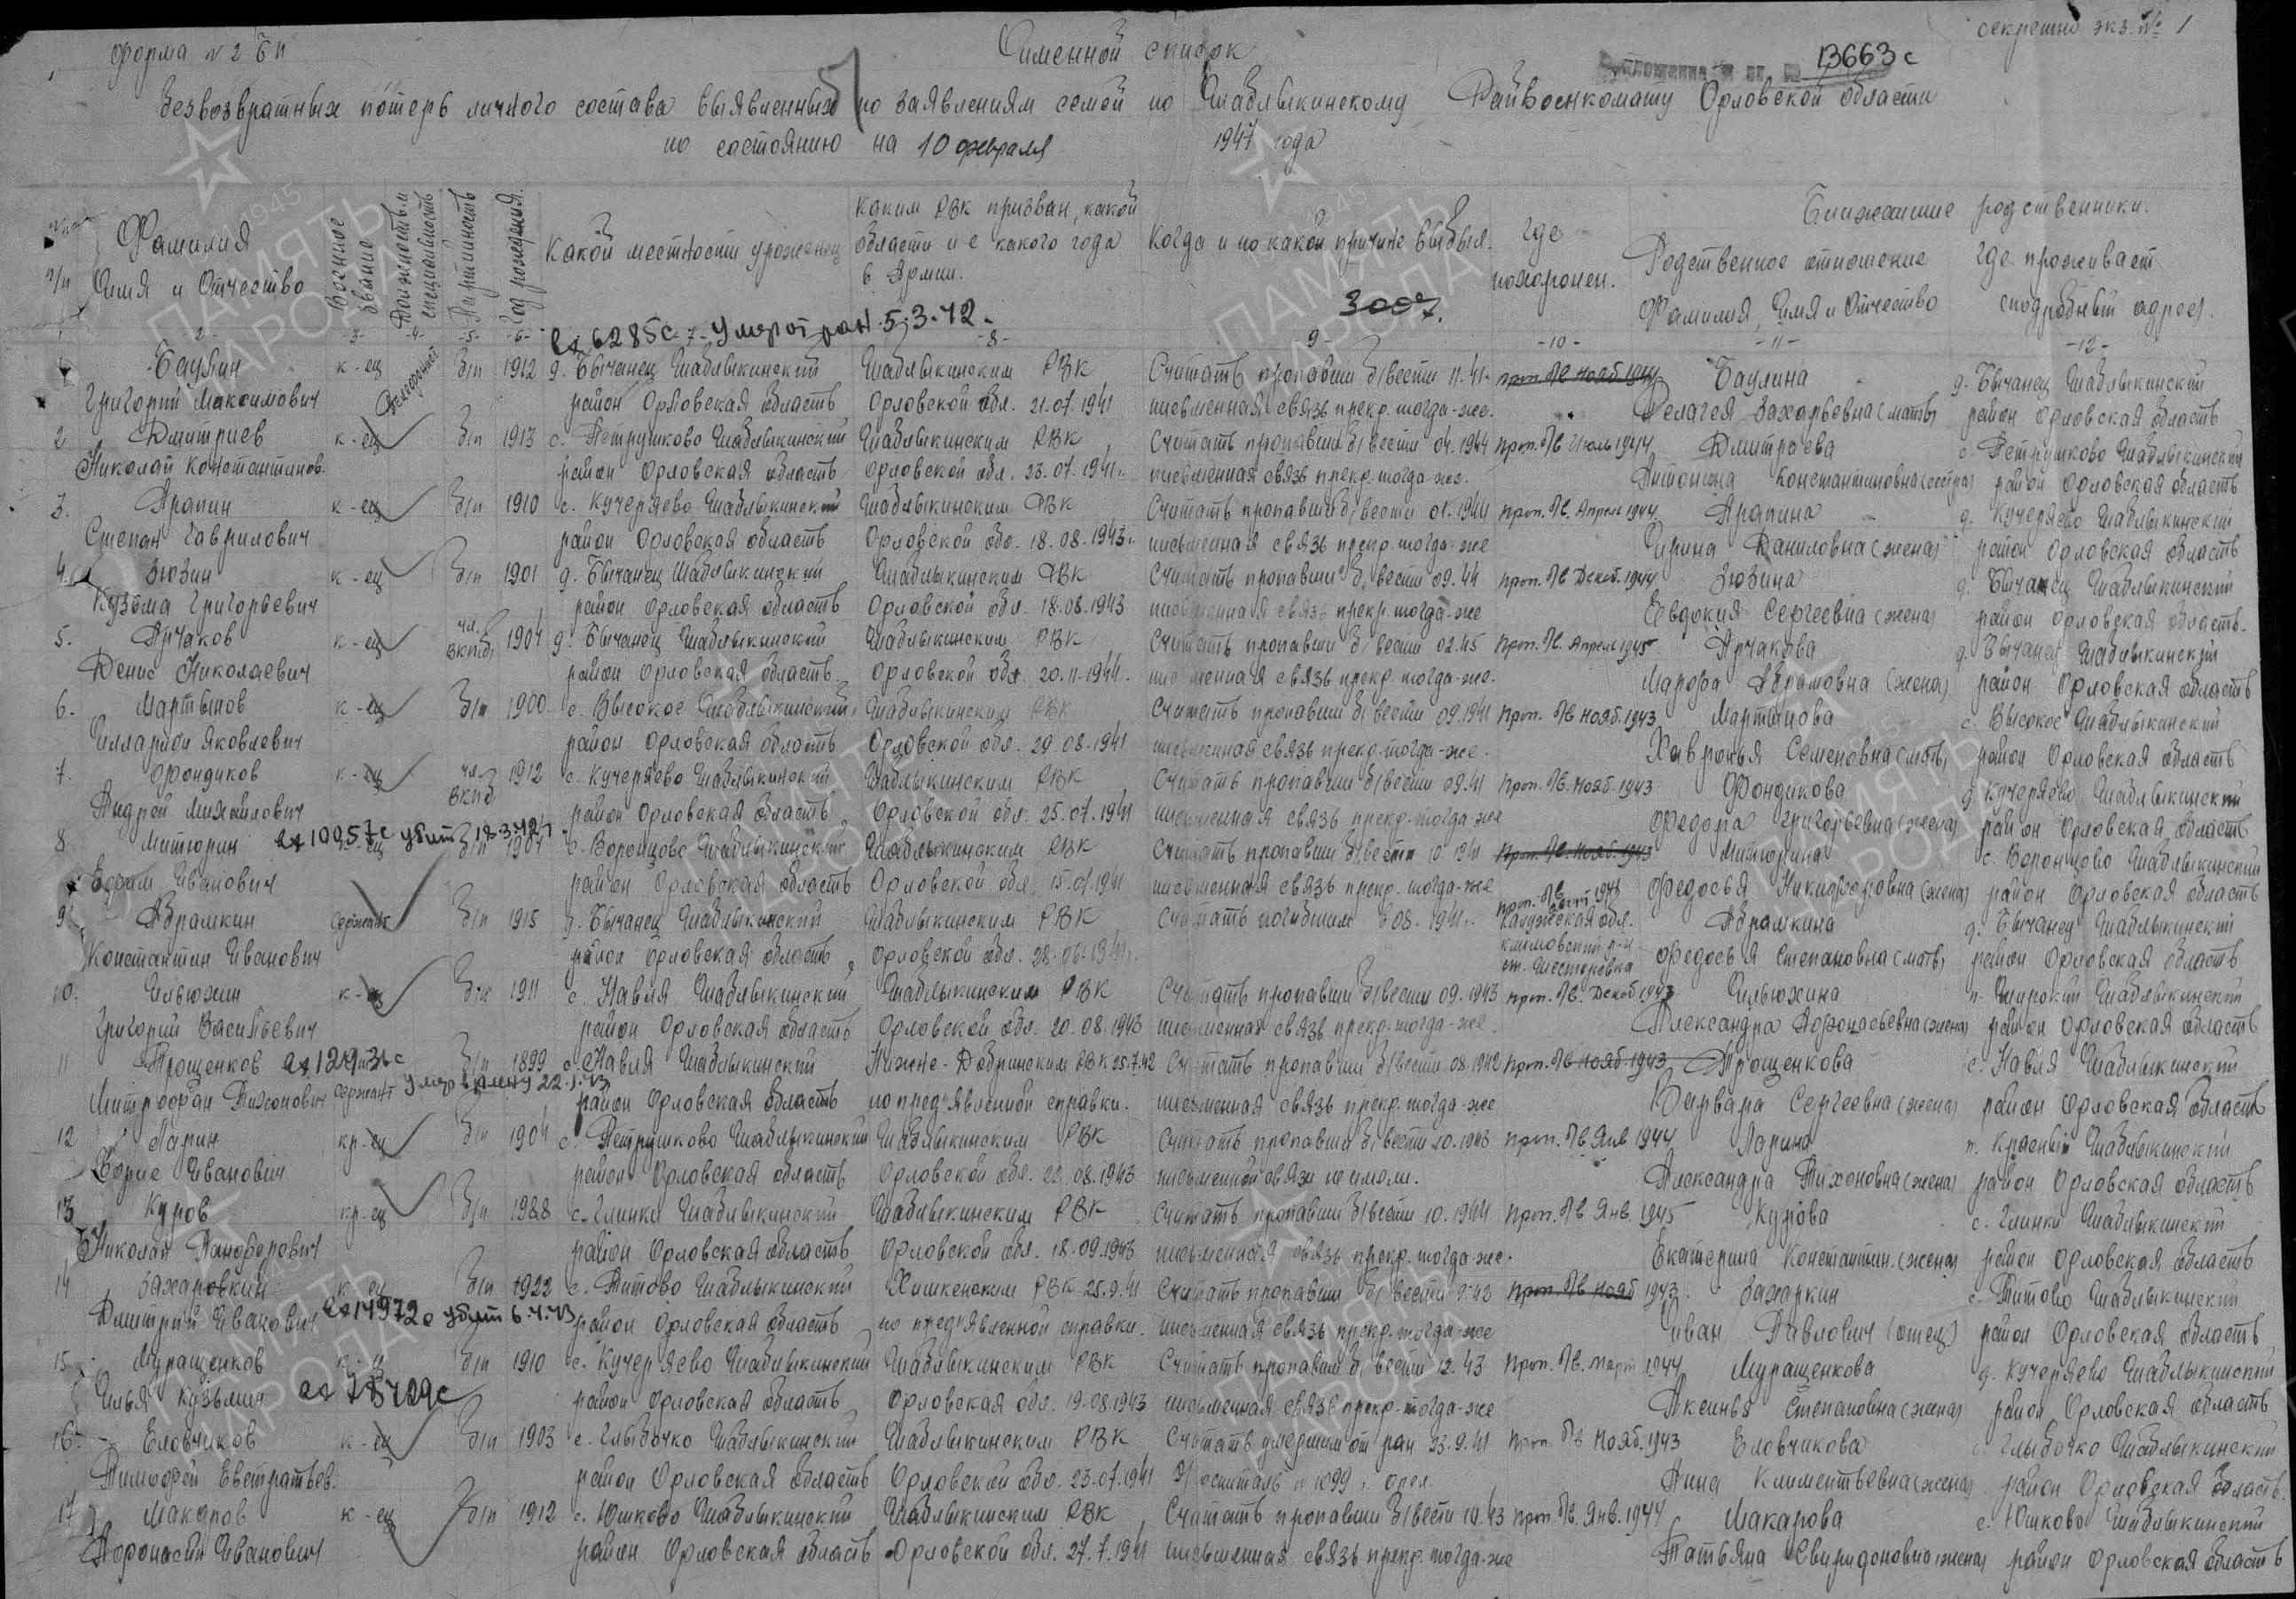 форма N 2 БП
Именной список
секретно экз. № 1
13663с
Безвозвратных потерь личного состава выявленных по заявлениям семей по Шаблыкинскому Райвоенкомату Орловской области
по состоянию на 10 февраля 1947 года
п/п
Фамилия Имя и Отчество
Военное звание
Должность и специальность
Партийность
Год рождения
Какой местности уроженец
Каким РВК призван, какой области и с какого года в Армии.
Когда и по какой причине выбыл.
Где похоронен.
Ближайшие родственники.
Родственное отношение Фамилия, Имя и Отчество
Где проживает с подробный адрес.
3007.
вх 6285с умер от ран 5.3.42.
-2- -3- -4- -5- -6- -7- -8- -9- -10- -11- -12-
Баулин к-ец телефонист б/п 1912 д. Бычанец Шаблыкинский Шаблыкинским РВК Считать пропавш. б/вести 11.41. проп. п/в нояб 1944 Баулина д. Бычанец Шаблыкинский
Григорий Максимович район Орловская область Орловской обл. 21.07.1941 письменная связь прекр. тогда-же. Пелагея Захарьевна (мать) район Орловская область
2 Дмитриев к-ец б/п 1913 с. Петрушково Шаблыкинский Шаблыкинским РВК Считать пропавши б/вести 04.1944 проп. п/в Июль 1944 Дмитриева с. Петрушково Шаблыкинский
Николай Константинов. район Орловская область Орловской обл. 23.07.1941 письменная связь прекр. тогда-же. Антонина Константиновна (сестра) район Орловская область
3. Арапин к-ец б/п 1910 с. Кучеряево Шаблыкинский Шаблыкинским РВК Считать пропавши б/вести 01.1944 проп. п/в. Апрель 1944 Арапина д. Кучеряево Шаблыкинский
Степан Гаврилович район Орловская область Орловской обл. 18.08.1943. письменная связь прекр. тогда-же Ирина Даниловна (жена) район Орловская область
4. Зюзин к-ец б/п 1901 д. Бычанец Шаблыкинский Шаблыкинским РВК Считать пропавши б/вести 09.44 проп. п/в Декаб. 1944 Зюзина д. Бычанец Шаблыкинский
Кузьма Григорьевич район Орловская область Орловской обл. 18.08.1943 письменная связь прекр. тогда-же Евдокия Сергеевна (жена) район Орловская область.
5. Арчаков к-ец чл. ВКП(б) 1904 д. Бычанец Шаблыкинский Шаблыкинским РВК Считать пропавши б/вести 02.45 Проп. п/в. Апрель 1945 Арчакова д. Бычанец Шаблыкинский
Денис Николаевич район Орловская область. Орловской обл. 20.11.1944. письменная связь прекр. тогда-же. Марфа Абрамовна (жена) район Орловская область
6. Мартынов к-ец б/п 1900 с. Высокое Шаблыкинский Шаблыкинским РВК Считать пропавши б/вести 09.1941 Проп. п/в нояб. 1943 Мартынова с. Высокое Шаблыкинский
Илларион Яковлевич район Орловская область Орловской обл. 29.08.1941 письменная связь прекр. тогда-же. Хавронья Семеновна (мать) район Орловская область
7. Фондиков к-ец чл. ВКПб 1912 с. Кучеряево Шаблыкинский Шаблыкинским РВК Считать пропавши б/вести 09.41 Проп. п/в. нояб. 1943 Фондикова д. Кучеряево Шаблыкинский
Андрей Михайлович район Орловская область Орловской обл. 25.07.1941 письменная связь прекр. тогда же Федора Григорьевна (жена) район Орловская область
8. Митюрин вх 10057с убит 18.3.42 к-ец б/п 1904 с. Воронцово Шаблыкинский Шаблыкинским РВК Считать пропавши б/вести 10.1941 Проп. п/в. Нояб. 1943 Митюрина с. Воронцово Шаблыкинский
Ефим Иванович район Орловская область Орловской обл. 15.07.1941 письменная связь прекр. тогда-же Федосья Никифоровна (жена) район Орловская область
9. Абрамкин сержант б/п 1915 д. Бычанец Шаблыкинский Шаблыкинским РВК Считать погибшим 08.1941. Калужская обл. Абрамкина д. Бычанец Шаблыкинский
Константин Иванович район Орловская область Орловской обл. 28.06.1941. Федосья Степановна (мать) район Орловская область
10. Ильюхин к-ец б/п 1911 с. Навля Шаблыкинский Шаблыкинским РВК Считать пропавши б/вести 09.1943 проп. п/в. Декаб 1943 Ильюхина п. Широкий Шаблыкинский
Григорий Васильевич район Орловская область Орловской обл. 20.08.1943 письменная связь прекр. тогда-же. Александра Афонасьевна (жена) район Орловская область
11 Трощенков б/п 1899 с. Навля Шаблыкинский Нижне-Добринским РВК 25.7.42 Считать пропавши б/вести 08.1942 проп. п/в нояб. 1943 Трощенкова с. Навля Шаблыкинский
Митрофан Тихонович сержант район Орловская область по предъявленной справки. письменная связь прекр. тогда-же Варвара Сергеевна (жена) район Орловская область
12 Ларин кр-ец б/п 1904 с. Петрушково Шаблыкинский Шаблыкинским РВК Считать пропавши б/вести 10.1943 проп. п/в Янв 1944 Ларина п. Красный Шаблыкинский
Борис Иванович район Орловская область Орловской обл. 22.08.1943 письменной связи не имели. Александра Тихоновна (жена) район Орловская область
13 Куров кр-ец б/п с. Глинки Шаблыкинский Шаблыкинским РВК Считать пропавши б/вести 10.1944 проп. п/в Янв. 1945 Курова с. Глинки Шаблыкинский
Николай район Орловская область Орловской обл. 18.09.1943 письменная связь прекр. тогда-же. Екатерина Константин. (жена) район Орловская область
14 Захаровкин к-ец б/п 1922 с. Титово Шаблыкинский РВК 25.9.41 Считать пропавши б/вести проп. п/в нояб 1943. Захаркин с. Титово Шаблыкинский
Дмитрий Иванович вх 14972с убит 6.4.43 район Орловская область по предъявленной справки. письменная связь прекр. тогда-же Иван Павлович (отец) район Орловская область
15. Муращенков к-ец б/п 1910 с. Кучеряево Шаблыкинский Шаблыкинским РВК Считать пропавши б/вести 12.43 Проп. п/в. март 1944 Муращенкова д. Кучеряево Шаблыкинский
Илья Кузьмич район Орловская область Орловская обл. 19.08.1943 письменная связь прекр. тогда-же Аксинья Степановна (жена) район Орловская область
16. Еловчиков к-ец б/п 1903 с. Глыбочко Шаблыкинский Шаблыкинским РВК Считать умершим от ран 23.9.41 проп. п/в Нояб. 1943 Еловчикова с. Глыбочко Шаблыкинский
Тимофей Евстратьев. район Орловская область Орловской обл. 23.07.1941 госпиталь н 1099 г. орел. Анна Климентьевна (жена) район Орловская область.
17 Макаров к-ец б/п 1912 с. Юшково Шаблыкинский Шаблыкинским РВК Считать пропавши б/вести 10.43 проп. п/в. Янв. 1944 Макарова с. Юшково Шаблыкинский
Афонасий Иванович район Орловская область Орловской обл. 27.7.1941 письменная связь прекр. тогда-же Татьяна Свиридоновна (жена) район Орловская область